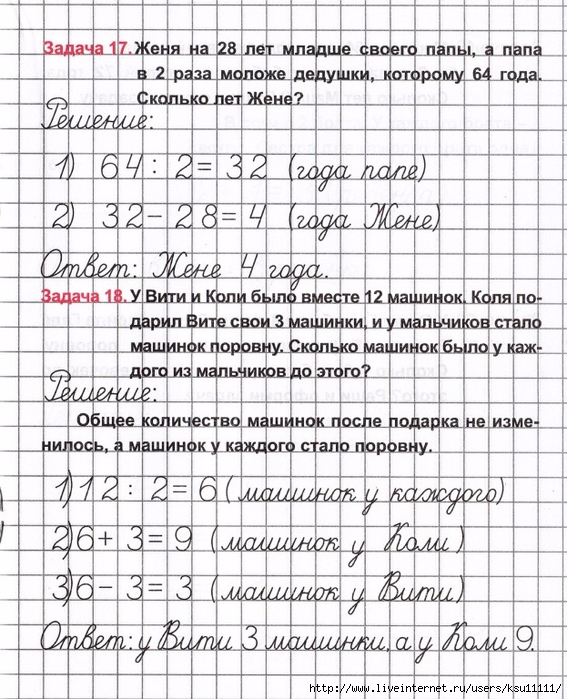 Задача 17. Женя на 28 лет младше своего папы, а папа
в 2 раза моложе дедушки, которому 64 года.
Сколько лет Жене?
Решение:
1) 64 : 2 = 32 (года папе)
2) 32 - 28 = 4 (года Жене)
Ответ: Жене 4 года.
Задача 18. У Вити и Коли было вместе 12 машинок. Коля по-
дарил Вите свои 3 машинки, и у мальчиков стало
машинок поровну. Сколько машинок было у каж-
дого из мальчиков до этого?
Решение:
Общее количество машинок после подарка не изме-
нилось, а машинок у каждого стало поровну.
1) 12 : 2 = 6 (машинок у каждого)
2) 6 + 3 = 9 (машинок у Коли)
3) 6 - 3 = 3 (машинок у Вити)
Ответ: у Вити 3 машинки, а у Коли 9.
http://www.liveinternet.ru/users/ksu11111/